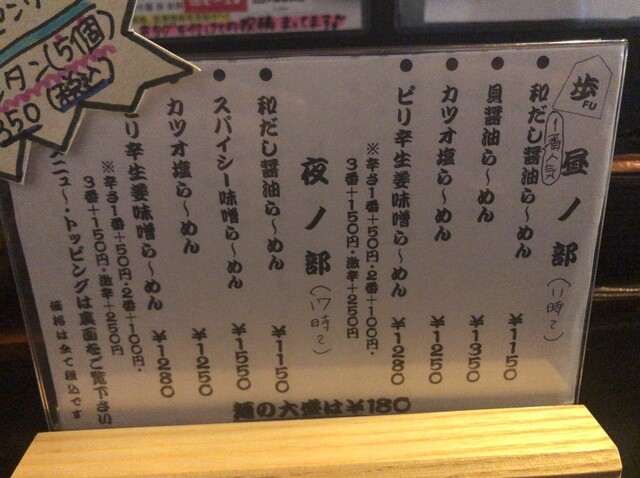 歩
FU
昼ノ部 (11時〜)
1番人気
和だし醤油ら〜めん ¥1150
貝醤油ら〜めん ¥1350
カツオ塩ら〜めん ¥1250
ピリ辛生姜味噌ら〜めん ¥1280
※辛さ1番+50円・2番+100円・
3番+150円・激辛+250円
夜ノ部 (17時〜)
和だし醤油ら〜めん ¥1150
スパイシー味噌ら〜めん ¥1550
カツオ塩ら〜めん ¥1250
リ辛生姜味噌ら〜めん ¥1280
※辛さ1番+50円・2番+100円・
3番+150円・激辛+250円
ニュー・トッピングは裏面をご覧下さい
価格は全て税込です
麺の大盛は¥180
ンタン(5個)
350 (税込)